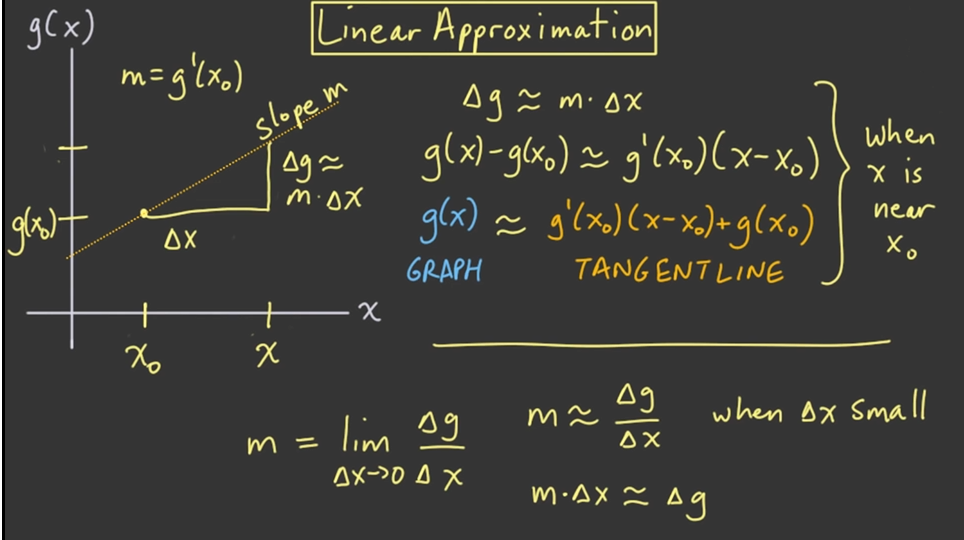 Linear Approximation
g(x)
m = g'(x₀)
slope m
Δg ≈
m·Δx
g(x₀)
Δx
x
x₀
x
Δg ≈ m·Δx
g(x)-g(x₀) ≈ g'(x₀)(x-x₀)
g(x) ≈ g'(x₀)(x-x₀)+g(x₀)
GRAPH TANGENT LINE
when
x is
near
x₀
m = lim Δg
Δx→0 Δx
m ≈ Δg/Δx when Δx small
m·Δx ≈ Δg